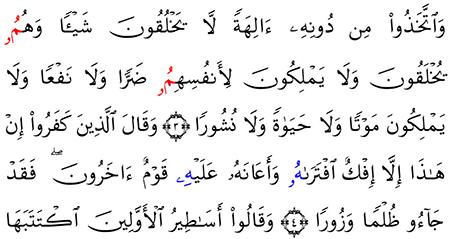 وَٱتَّخَذُوا۟ مِن دُونِهِۦٓ ءَالِهَةً لَّا يَخْلُقُونَ شَيْـًٔا وَهُمُۥ
يُخْلَقُونَ وَلَا يَمْلِكُونَ لِأَنفُسِهِمُۥ ضَرًّا وَلَا نَفْعًا وَلَا
يَمْلِكُونَ مَوْتًا وَلَا حَيَوٰةً وَلَا نُشُورًا ﴿٣﴾ وَقَالَ ٱلَّذِينَ كَفَرُوٓا۟ إِنْ
هَـٰذَآ إِلَّآ إِفْكٌ ٱفْتَرَىٰهُۥ وَأَعَانَهُۥ عَلَيْهِۦ قَوْمٌ ءَاخَرُونَ ۖ فَقَدْ
جَآءُو ظُلْمًا وَزُورًا ﴿٤﴾ وَقَالُوٓا۟ أَسَـٰطِيرُ ٱلْأَوَّلِينَ ٱكْتَتَبَهَا